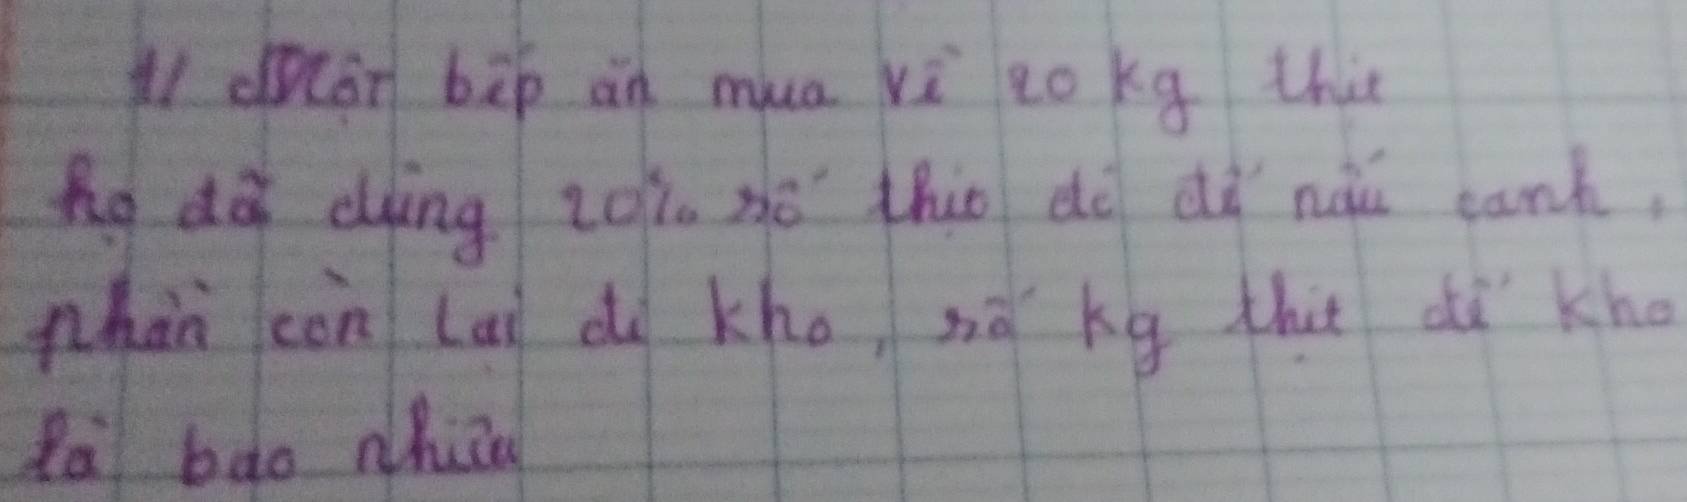 1/ Một bếp ăn mua về 20 kg thịt
họ đã dùng 20% số thịt đó để nấu canh,
phần còn lại để kho, số kg thịt để kho
là bao nhiêu